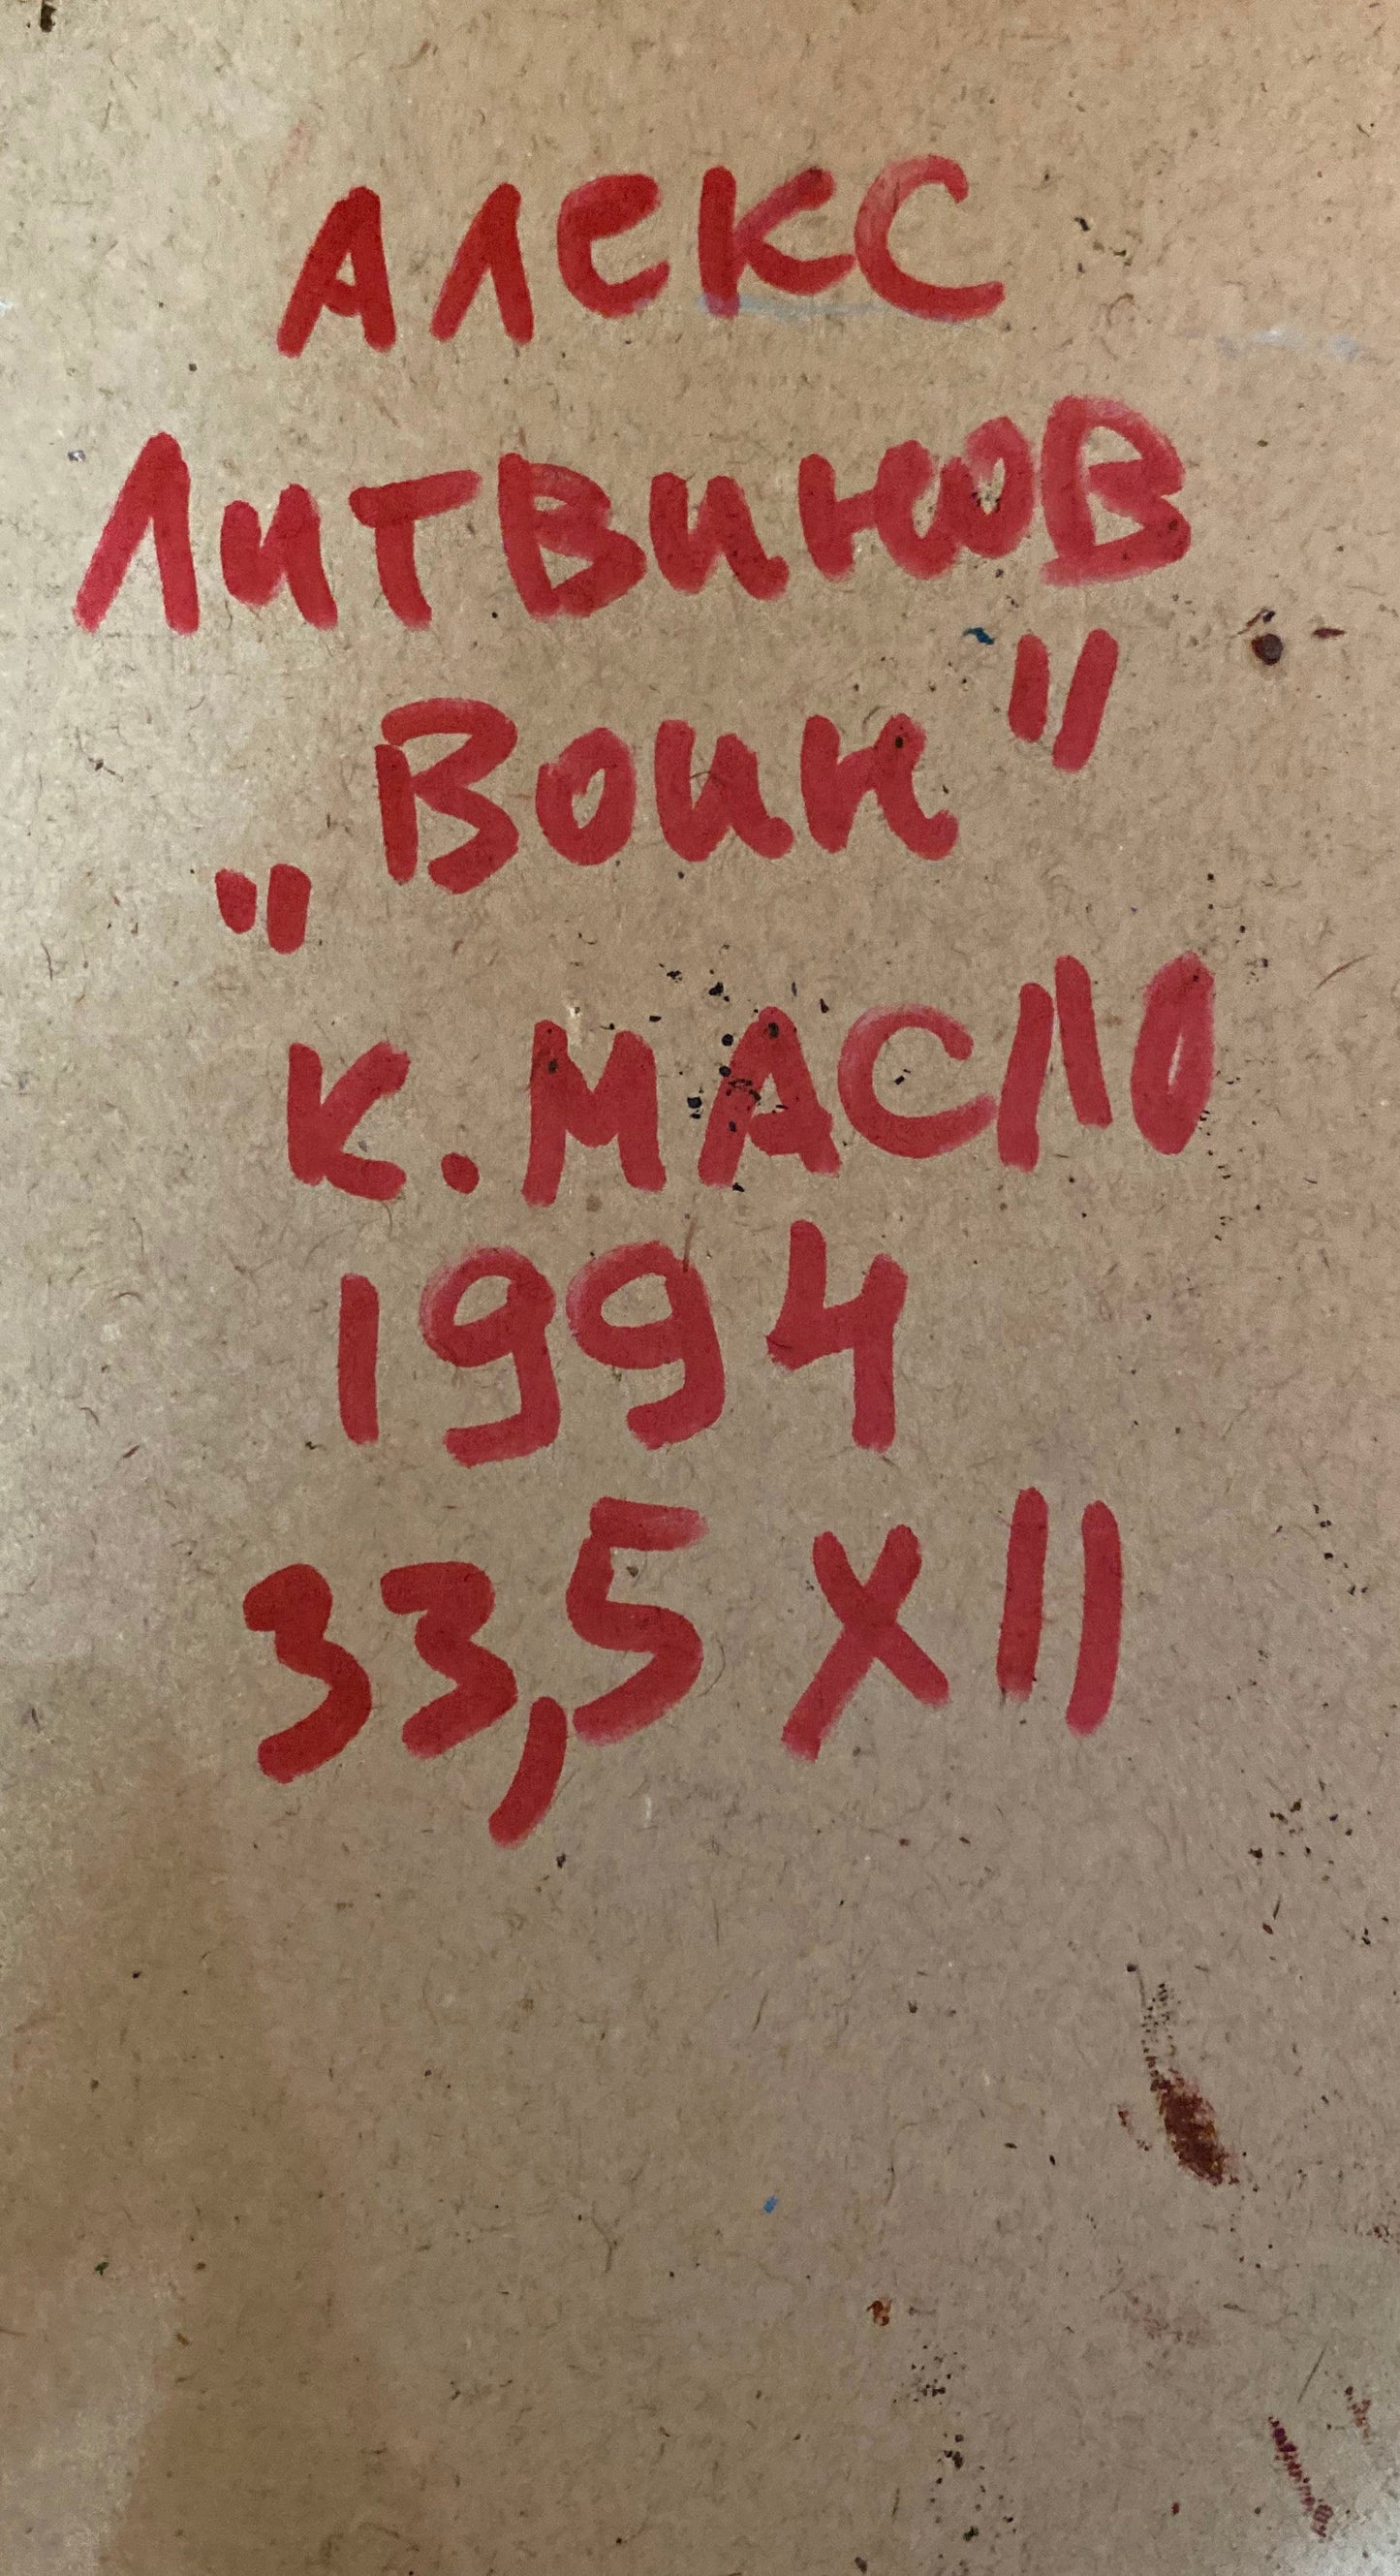 АЛЕКС
ЛИТВИНОВ
„Воин"
К. МАСЛО
1994
33,5 X 11